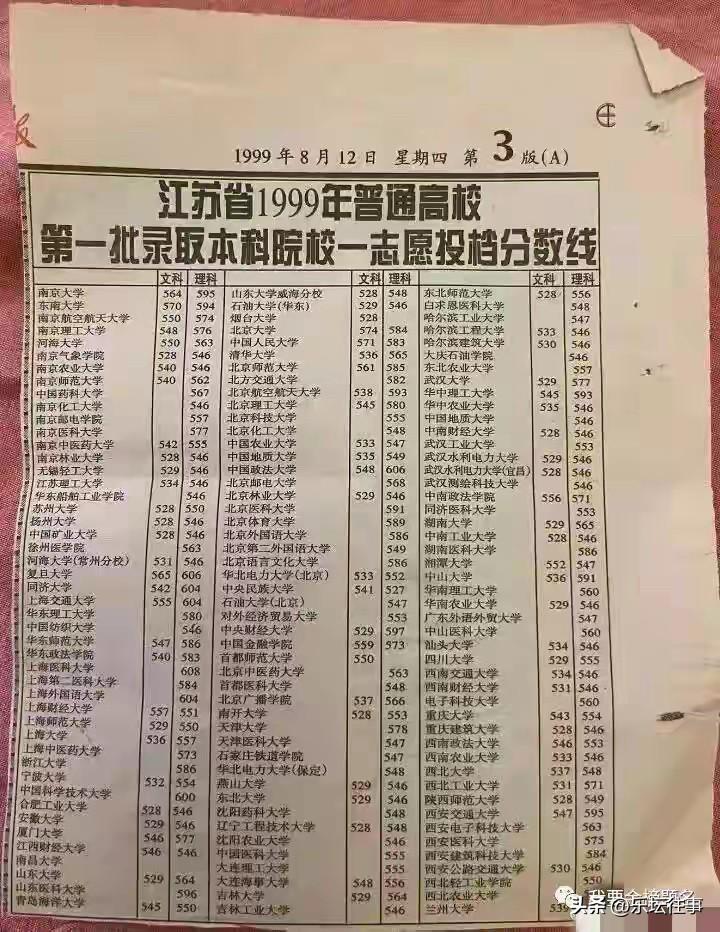 1999年8月12日 星期四 第3版(A)
江苏省1999年普通高校
第一批录取本科院校一志愿投档分数线
文科 理科 文科 理科 文科 理科
南京大学 564 595
东南大学 570 594
南京航空航天大学 550 574
南京理工大学 548 576
河海大学 550 563
南京气象学院 528 546
南京农业大学 540 546
南京师范大学 540 562
中国药科大学 567
南京化工大学 546
南京邮电学院 557
南京医科大学 577
南京中医药大学 542 555
南京林业大学 528 546
无锡轻工大学 529 546
江苏理工大学 534 546
华东船舶工业学院 546
苏州大学 528 550
扬州大学 528 546
中国矿业大学 528 546
徐州医学院 563
河海大学(常州分校) 531 546
复旦大学 565 606
同济大学 542 604
上海交通大学 555 604
华东理工大学 580
中国纺织大学 546
华东师范大学 547 586
华东政法学院 540 583
上海医科大学 608
上海第二医科大学 584
上海外国语大学 604
上海财经大学 557 551
上海师范大学 529 550
上海大学 536 557
上海中医药大学 573
浙江大学 586
宁波大学 532 554
中国科学技术大学 600
合肥工业大学 528 546
安徽大学 529 546
厦门大学 546 577
江西财经大学 546 546
南昌大学
山东大学 529 564
山东医科大学 596
青岛海洋大学 545 550
山东大学威海分校 528 548
石油大学(华东) 529 546
烟台大学 528
北京大学 574 584
中国人民大学 571 583
清华大学 536 565
北京师范大学 561 585
北方交通大学 582
北京航空航天大学 538 593
北京理工大学 545 580
北京科技大学 555
北京化工大学 548
中国农业大学 533 547
中国地质大学 535 549
中国政法大学 548 606
北京邮电大学 568
北京林业大学 529 546
北京医科大学 591
北京体育大学 589
北京外国语大学 586
北京第二外国语大学 549
北京语言文化大学 586
华北电力大学(北京) 533 552
中央民族大学 541 527
石油大学(北京) 547
对外经济贸易大学 553
中央财经大学 529 597
中国金融学院 559 573
首都师范大学 550
北京中医药大学 563
首都医科大学 548
北京广播学院 537 566
南开大学 528 553
天津大学 578
天津医科大学 547
石家庄铁道学院 547
华北电力大学(保定) 548
燕山大学 529 546
东北大学 529 546
沈阳药科大学 548
辽宁工程技术大学 528 548
沈阳农业大学 546
中国医科大学 555
大连理工大学 555
大连海事大学 548 556
吉林大学 529 564
吉林工业大学 546
东北师范大学 528 556
白求恩医科大学 548
哈尔滨工业大学 547
哈尔滨工程大学 533 546
哈尔滨建筑大学 530 546
大庆石油学院 546
东北农业大学 557
武汉大学 529 577
华中理工大学 545 593
华中农业大学 535 546
中国地质大学 546
中南财经大学 528 546
武汉工业大学 553
武汉水利电力大学 529 546
武汉水利电力大学(宜昌) 528 546
武汉测绘科技大学 546
中南政法学院 556 571
同济医科大学 553
湖南大学 529 565
中南工业大学 528 546
湖南医科大学 586
湘潭大学 552 547
中山大学 536 591
华南理工大学 560
华南农业大学 529 546
广东外语外贸大学 547
中山医科大学 560
汕头大学 534 546
四川大学 529 555
西南交通大学 534 546
西南财经大学 531 546
电子科技大学 560
重庆大学 543 554
重庆建筑大学 528 546
西南政法大学 546 553
西南农业大学 533 546
西北大学 537 548
西北工业大学 531 571
陕西师范大学 528 549
西安交通大学 547 595
西安电子科技大学 563
西安医科大学 575
西安建筑科技大学 584
西安公路交通大学 530 546
西北轻工业学院 550
西北农业大学
兰州大学
我要金榜题名
头条 @东坛往事